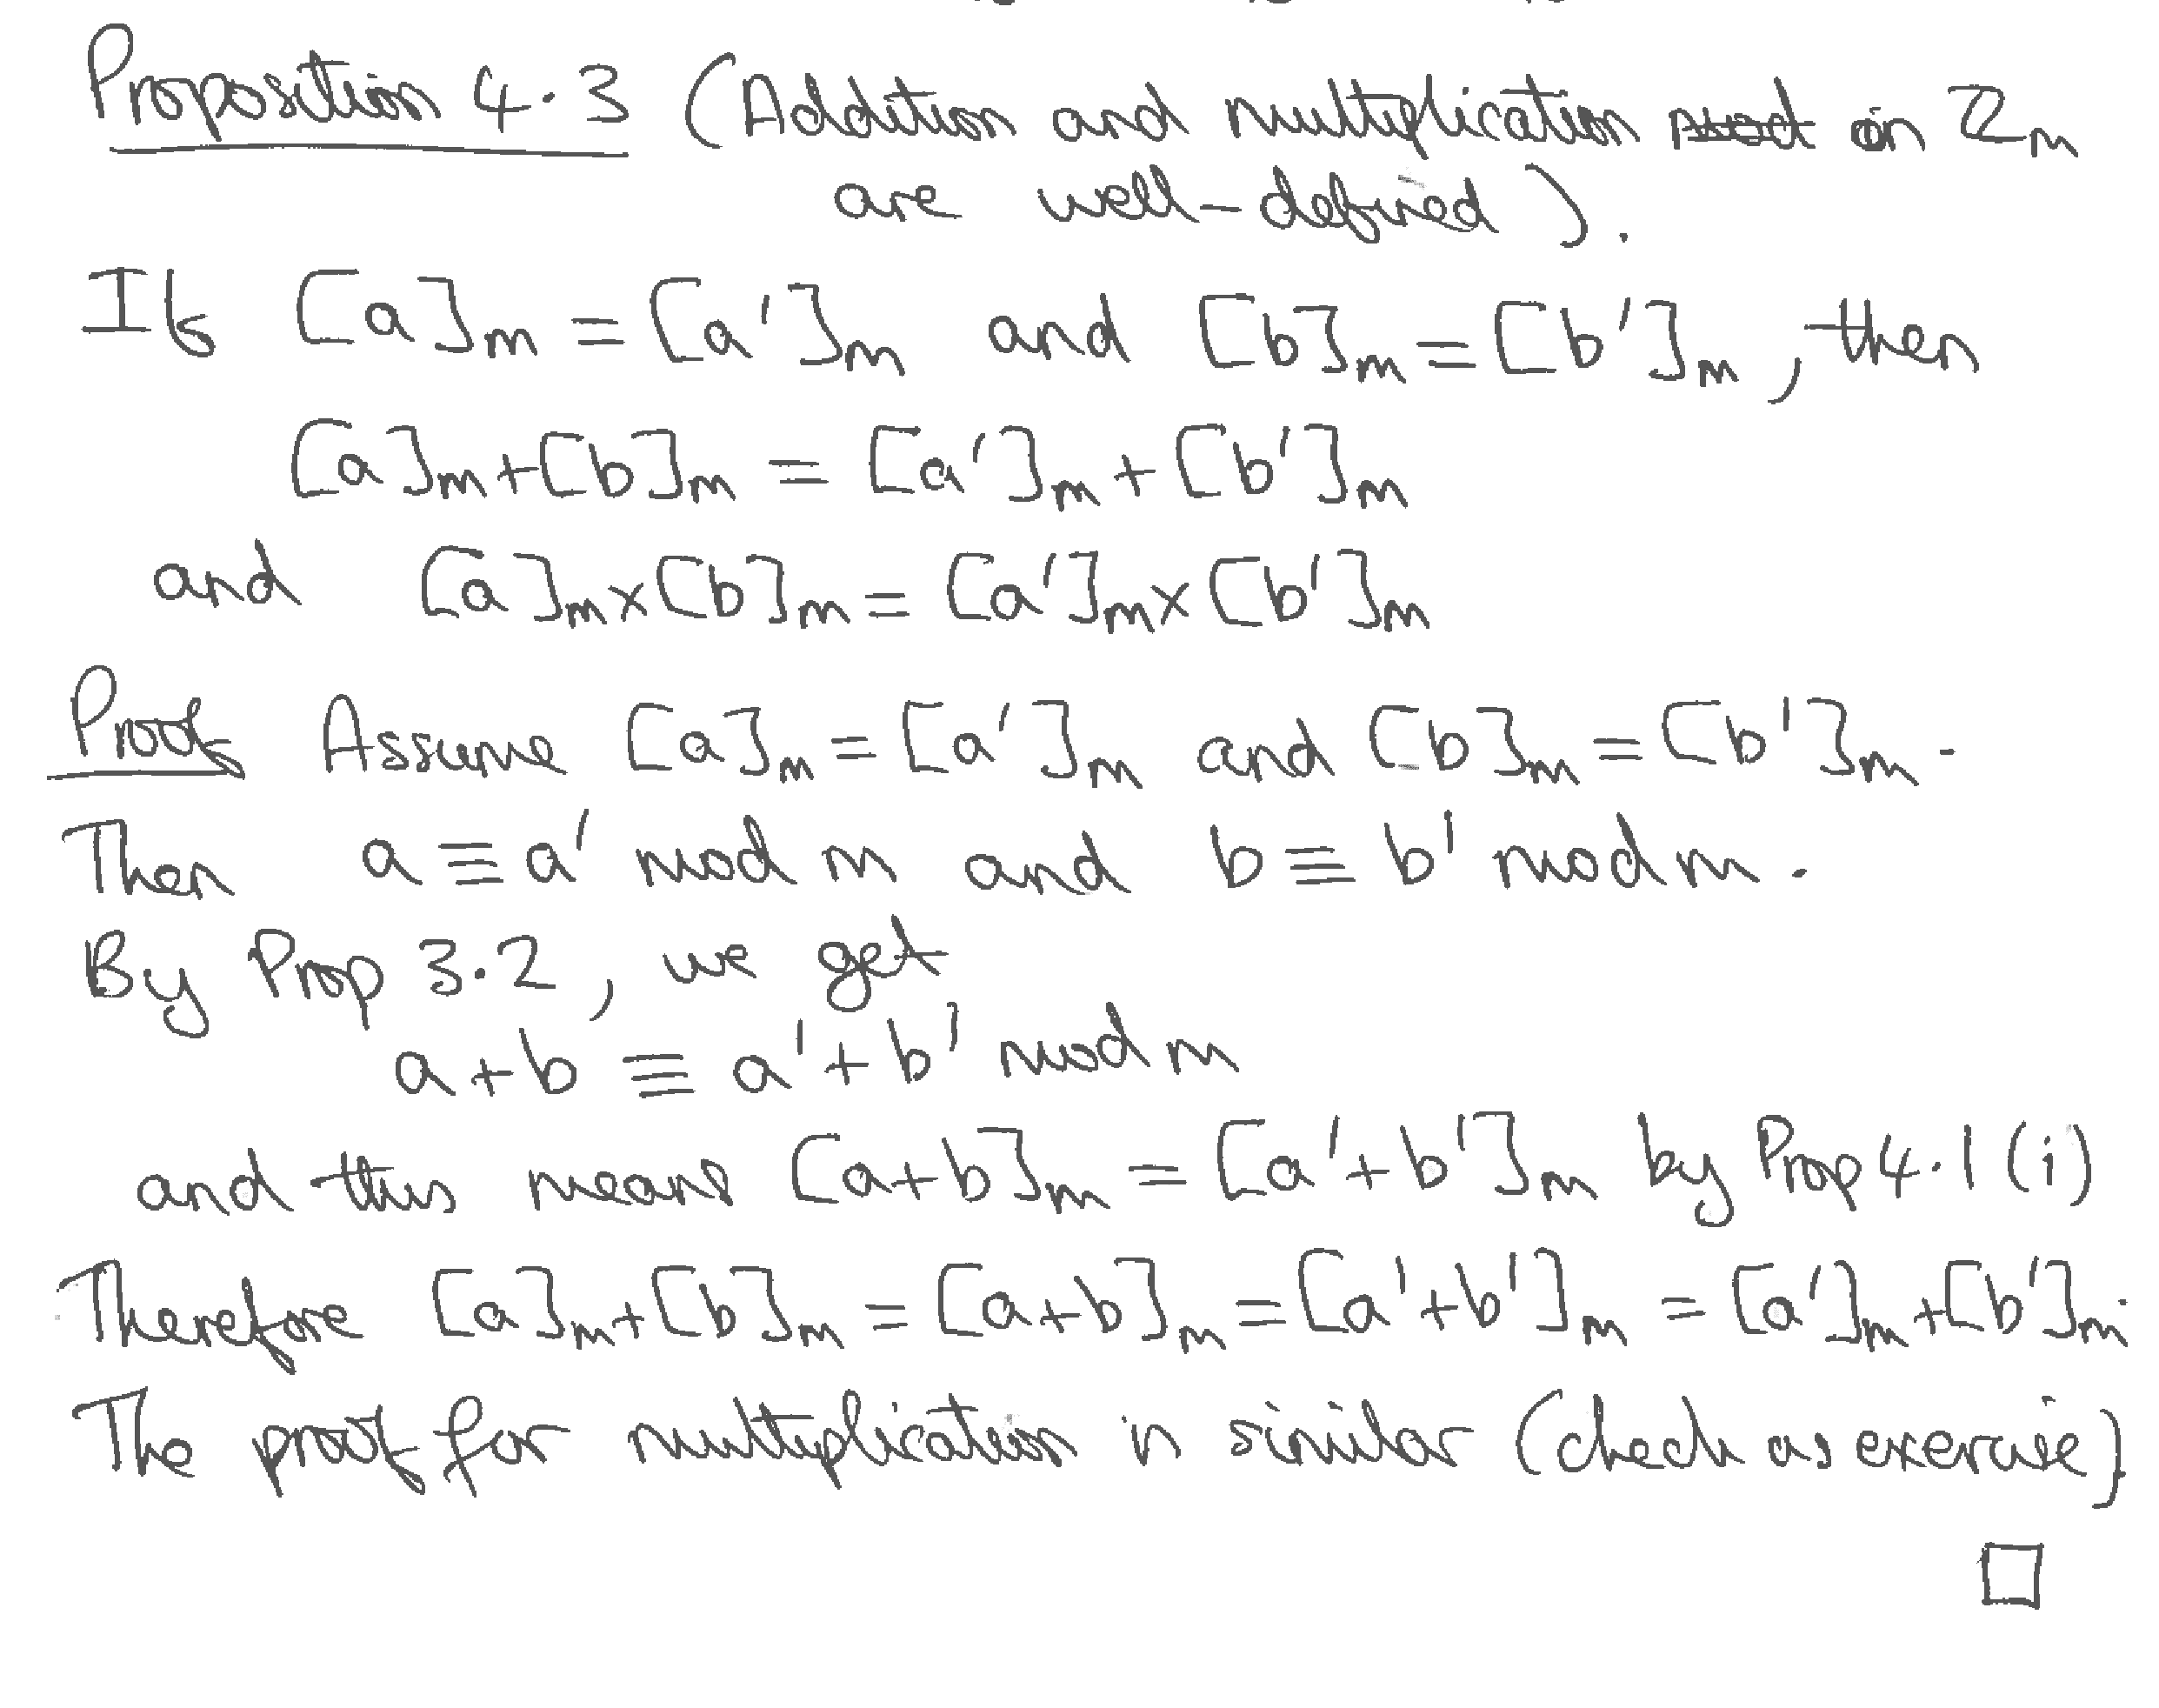 Proposition 4.3 (Addition and multiplication in ℤₘ
are well-defined).
If [a]ₘ = [a']ₘ and [b]ₘ = [b']ₘ, then
[a]ₘ + [b]ₘ = [a']ₘ + [b']ₘ
and [a]ₘ × [b]ₘ = [a']ₘ × [b']ₘ
Proof Assume [a]ₘ = [a']ₘ and [b]ₘ = [b']ₘ.
Then a ≡ a' mod m and b ≡ b' mod m.
By Prop 3.2, we get
a + b ≡ a' + b' mod m
and this means [a+b]ₘ = [a'+b']ₘ by Prop 4.1 (i)
Therefore [a]ₘ + [b]ₘ = [a+b]ₘ = [a'+b']ₘ = [a']ₘ + [b']ₘ.
The proof for multiplication is similar (check as exercise)
□